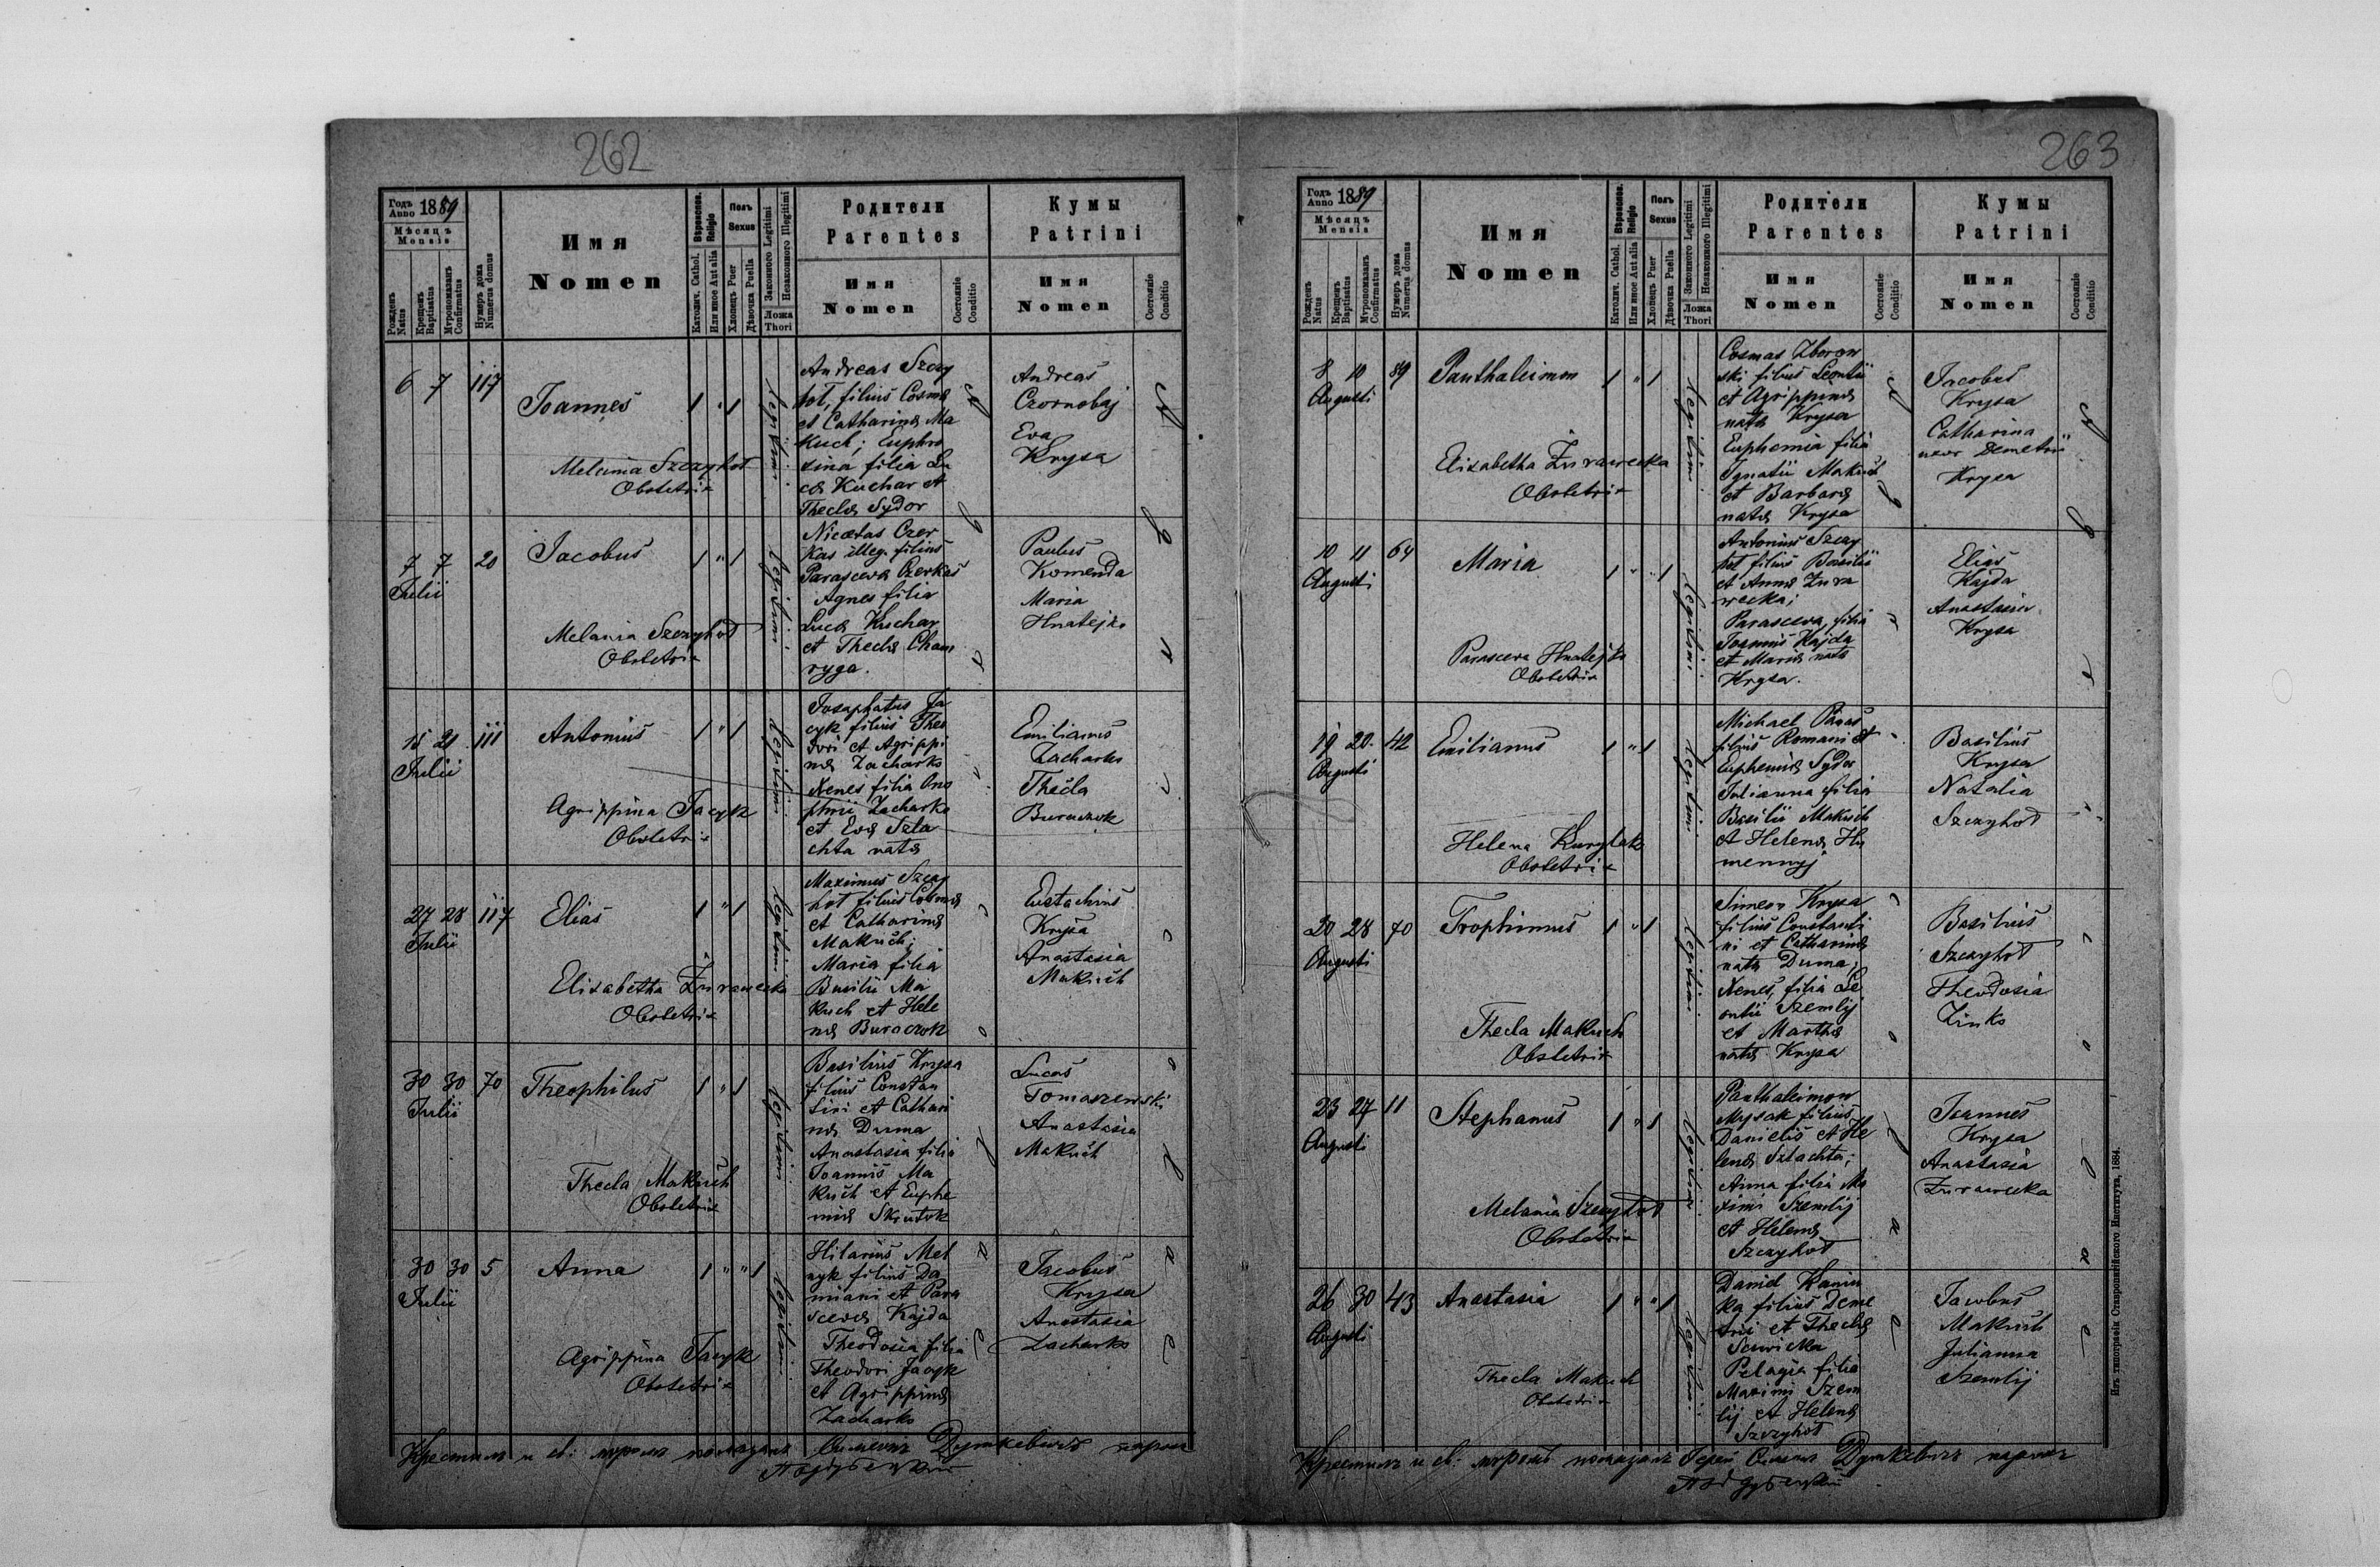 262
Годъ Anno 1889
Мѣсяцъ Mensis
Рожденъ Natus
Крещенъ Baptisatus
Мѵропомазанъ Confirmatus
Нумеръ дома Numerus domus
Имя
Nomen
Вѣроиспов. Religio
Католич. Cathol.
Или иное Aut alia
Полъ Sexus
Хлопецъ Puer
Дѣвочка Puella
Законного Legitimi
Незаконного Illegitimi
Ложа Thori
Родители
Parentes
Имя
Nomen
Состояніе Conditio
Кумы
Patrini
Имя
Nomen
Состояніе Conditio
6 7 117
Joannes
1 " 1
legitimi
Melania Szczyhot
Obstetrix
Andreas Szczy
hot, filius Cosmæ
et Catharinæ Ma
kuch; Euphro
sina filia Lu
cæ Kuchar et
Theclæ Sydor
Andreas
Czornobaj
Eva
Krysa
7 7 20
Julii
Jacobus
1 " 1
legitimi
Melania Szczyhot
Obstetrix
Nicetas Czer
kas illeg. filius
Parascevæ Czerkas
Agnes filia
Lucæ Kuchar
et Theclæ Cham
ryga.
Paulus
Komenda
Maria
Hnatejko
21 111
Julii
Antonius
1 " 1
legitimi
Agrippina Jacyk
Obstetrix
Josaphatus Ja
cyk filius Theo
dori et Agrippi
næ Zacharko
Xenes filia Ono
phrii Zacharko
et Evæ Szla
chta natæ
Emilianus
Zacharko
Thecla
Buraczok
27 28 117
Julii
Elias
1 " 1
legitimi
Elisabetha Żurawecka
Obstetrix
Maximus Szczy
hot filius Cosmæ
et Catharinæ
Makuch;
Maria filia
Basilii Ma
kuch et Hele
næ Buraczok
Eustachius
Krysa
Anastasia
Makuch
30 30 70
Julii
Theophilus
1 " 1
legitimi
Thecla Makuch
Obstetrix
Basilius Krysa
filius Constan
tini et Cathari
næ Duma
Anastasia filia
Joannis Ma
kuch et Euphe
miæ Skrutok
Lucas
Tomaszewski
Anastasia
Makuch
30 30 5
Julii
Anna
1 " " 1
legitimi
Agrippina Jacyk
Obstetrix
Hilarius Mel
nyk filius Da
miani et Para
scevæ Kajda
Theodosia filia
Theodori Jacyk
et Agrippinæ
Zacharko
Jacobus
Krysa
Anastasia
Zacharko
Крестилъ и св: мѵромъ помазалъ Симеонъ Дуткевичъ парохъ
263
Годъ Anno 1889
Мѣсяцъ Mensis
Рожденъ Natus
Крещенъ Baptisatus
Мѵропомазанъ Confirmatus
Нумеръ дома Numerus domus
Имя
Nomen
Вѣроиспов. Religio
Католич. Cathol.
Или иное Aut alia
Полъ Sexus
Хлопецъ Puer
Дѣвочка Puella
Законного Legitimi
Незаконного Illegitimi
Ложа Thori
Родители
Parentes
Имя
Nomen
Состояніе Conditio
Кумы
Patrini
Имя
Nomen
Состояніе Conditio
8 10 89
Augusti
Panthaleimon
1 " 1
legitimi
Elisabetha Żurawecka
Obstetrix
Cosmas Zborow
ski filius Leontii
et Agrippinæ
natæ Krysa
Euphemia filia
Ignatii Makuch
et Barbaræ
natæ Krysa
Jacobus
Krysa
Catharina
uxor Demetrii
Krysa
10 11 64
Augusti
Maria
1 " " 1
legitimi
Parasceva Hnatejko
Obstetrix
Antonius Szczy
hot filius Basilii
et Annæ Żura
wecka;
Parasceva, filia
Joannis Kajda
et Mariæ natæ
Krysa.
Elias
Kajda
Anastasia
Krysa
19 20 42
Augusti
Emilianus
1 " 1
legitimi
Helena Kurylak
Obstetrix
Michael Paras
filius Romani et
Euphemiæ Sydor
Julianna filia
Basilii Makuch
et Helenæ Hu
mennyj
Basilius
Krysa
Natalia
Szczyhot
20 28 70
Augusti
Trophimus
1 " 1
legitimi
Thecla Makuch
Obstetrix
Simeon Krysa
filius Constanti
ni et Catharinæ
natæ Duma;
Xenes, filia Le
ontii Szemlij
et Marthæ
natæ Krysa
Basilius
Szczyhot
Theodosia
Zinko
23 27 11
Augusti
Stephanus
1 " 1
legitimi
Melania Szczyhot
Obstetrix
Panthaleimon
Mysak filius
Danielis et He
lenæ Szlachta;
Anna filia Ma
ximi Szemlij
et Helenæ
Szczyhot
Joannes
Krysa
Anastasia
Żurawecka
26 30 43
Augusti
Anastasia
1 " " 1
legitimi
Thecla Makuch
Obstetrix
Daniel Kanin
ka filius Deme
trii et Theclæ
Sawicka
Pelagia filia
Maximi Szem
lij et Helenæ
Szczyhot
Jacobus
Makuch
Julianna
Szemlij
Крестилъ и св: мѵромъ помазалъ Іерей Симеонъ Дуткевичъ парохъ
Изъ типографіи Ставропигійского Института, 1884.